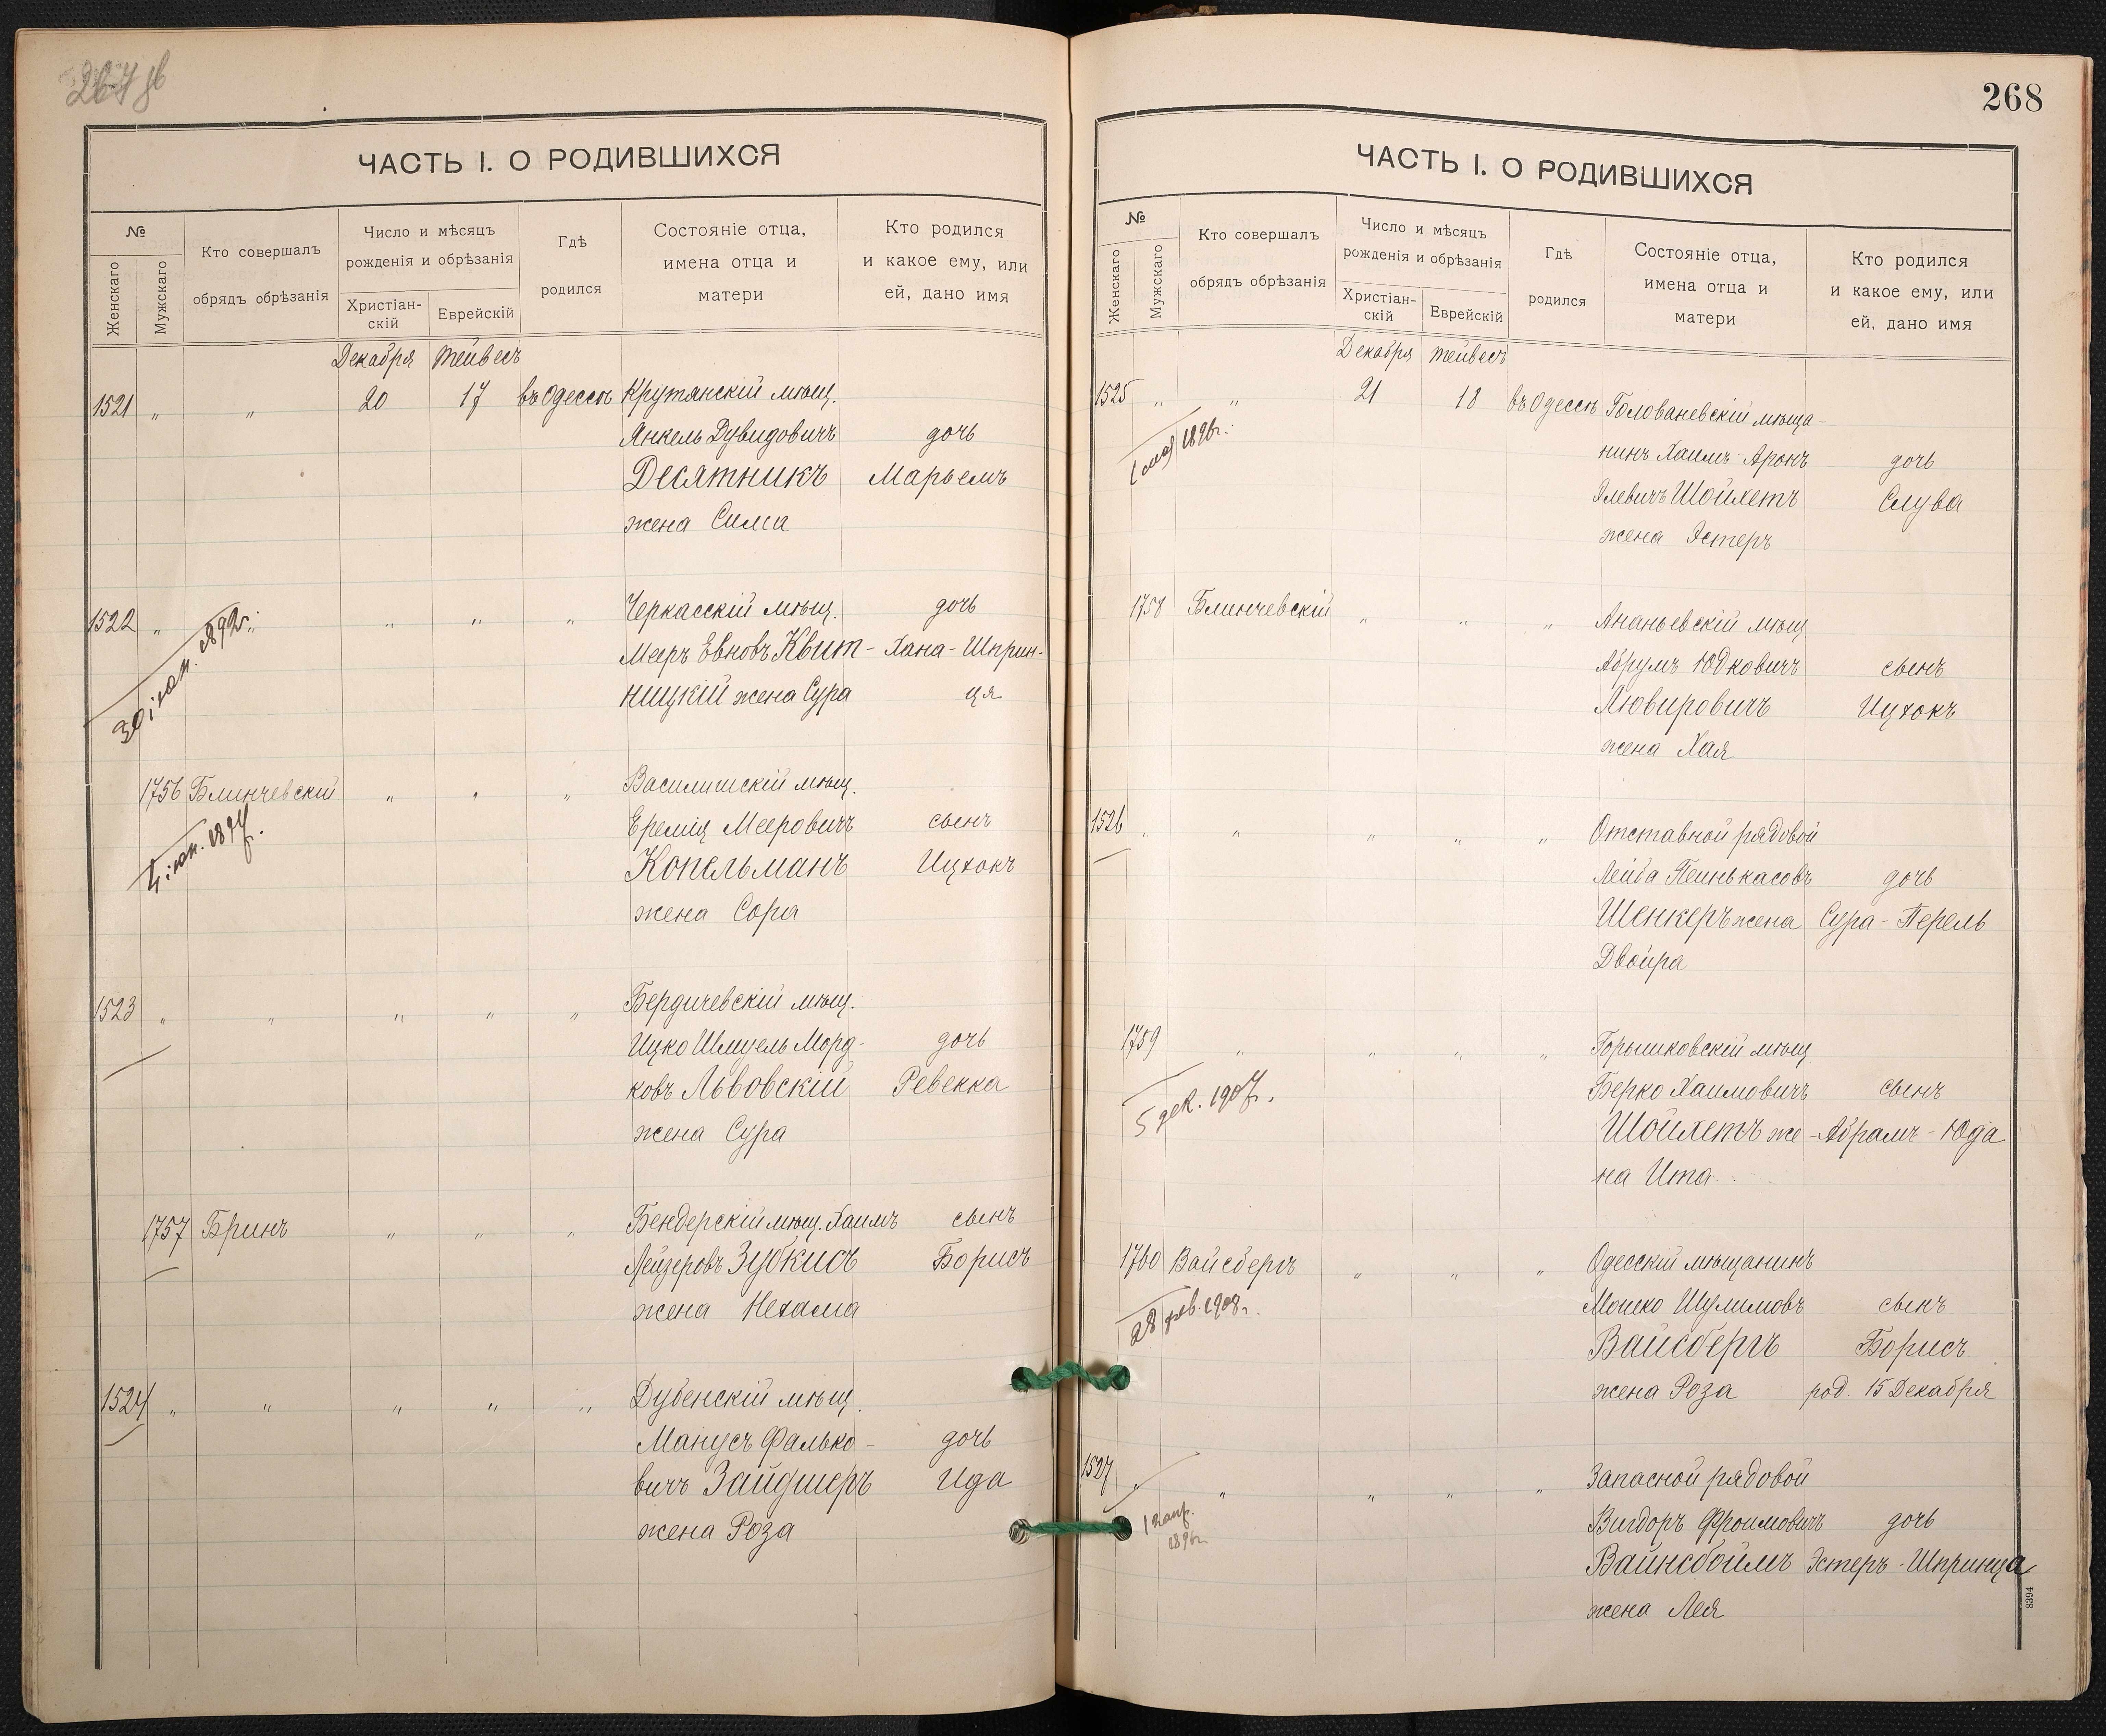 267 об
ЧАСТЬ I. О РОДИВШИХСЯ
№
Женскаго
Мужскаго
Кто совершалъ
обрядъ обрѣзанія
Число и мѣсяцъ
рожденія и обрѣзанія
Христіан-
скій
Еврейскій
Гдѣ
родился
Состояніе отца,
имена отца и
матери
Кто родился
и какое ему, или
ей, дано имя
Декабря Тейвесъ
1521 „ „ 20 17 въ Одессѣ Крутянскій мѣщ.
Янкель Дувидовичъ дочь
Десятникъ Марьемъ
жена Сима
1522 „ „ „ „ „ Черкасскій мѣщ. дочь
Мееръ Евновъ Квит- Хана-Шприн-
ницкій жена Сура ця
1756 Блинчевскій „ „ „ Василишскій мѣщ.
4 іюн. 1897г.
Еремія Мееровичъ сынъ
Копельманъ Ицхокъ
жена Сора
1523 „ „ „ „ „ Бердичевскій мѣщ.
Ицко Шмуель Морд- дочь
ковъ Львовскій Ревекка
жена Сура
1757 Бринъ „ „ „ Бендерскій мѣщ. Хаимъ сынъ
Лейзеровъ Зубкисъ Борисъ
жена Нехама
1524 „ „ „ „ „ Дубенскій мѣщ.
Манусъ Фалько- дочь
вичъ Зайдшеръ Ида
жена Роза
268
ЧАСТЬ I. О РОДИВШИХСЯ
№
Женскаго
Мужскаго
Кто совершалъ
обрядъ обрѣзанія
Число и мѣсяцъ
рожденія и обрѣзанія
Христіан-
скій
Еврейскій
Гдѣ
родился
Состояніе отца,
имена отца и
матери
Кто родился
и какое ему, или
ей, дано имя
Декабря Тейвесъ
1525 „ „ 21 18 въ Одессѣ Голованевскій мѣща-
1 мая 1896г.
нинъ Хаимъ-Аронъ дочь
Элевичъ Шойхетъ Слува
жена Эстеръ
1758 Блинчевскій „ „ „ Ананьевскій мѣщ.
Абрумъ Юдковичъ сынъ
Лювировичъ Ицхокъ
жена Хая
1526 „ „ „ „ „ Отставной рядовой
Лейба Пинькасовъ дочь
Шенкеръ жена Сура-Перель
Двойра
1759 „ „ „ „ Горышковскій мѣщ.
5 дек. 1907г.
Берко Хаимовичъ сынъ
Шойхетъ же- Абрамъ-Юда
на Ита
1760 Вайсбергъ „ „ „ Одесскій мѣщанинъ
28 фев. 1908г.
Мошко Шулимовъ сынъ
Вайсбергъ Борисъ
жена Роза род. 15 Декабря
1527 „ „ „ „ „ Запасной рядовой
Вигдоръ Фроимовичъ дочь
Вайнсбоймъ Эстеръ-Шпринца
жена Лея
8394